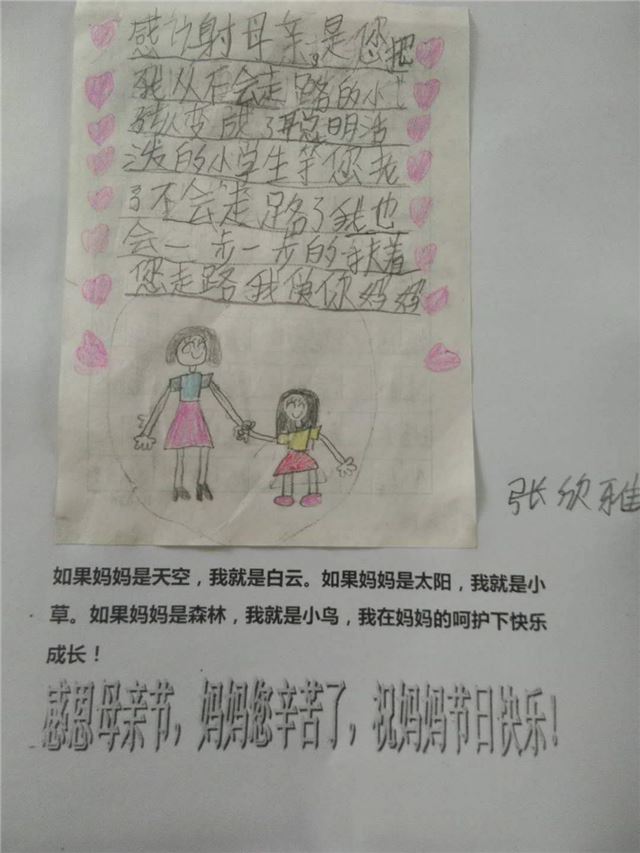 感谢母亲。是您把
我从不会走路的小
孩变成了聪明活
泼的小学生等您老
了不会走路了我也
会一步一步的扶着
您走路我像你妈妈
张欣雅
如果妈妈是天空，我就是白云。如果妈妈是太阳，我就是小
草。如果妈妈是森林，我就是小鸟，我在妈妈的呵护下快乐
成长！
感恩母亲节，妈妈您辛苦了，祝妈妈节日快乐！